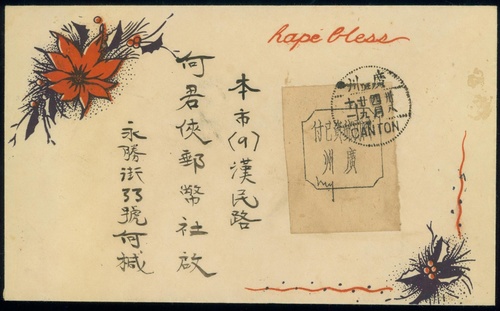 hape bless
本市(9)漢民路
何君俠郵幣社啟
永勝街33號何椷
廣州
CANTON
付已
廣州